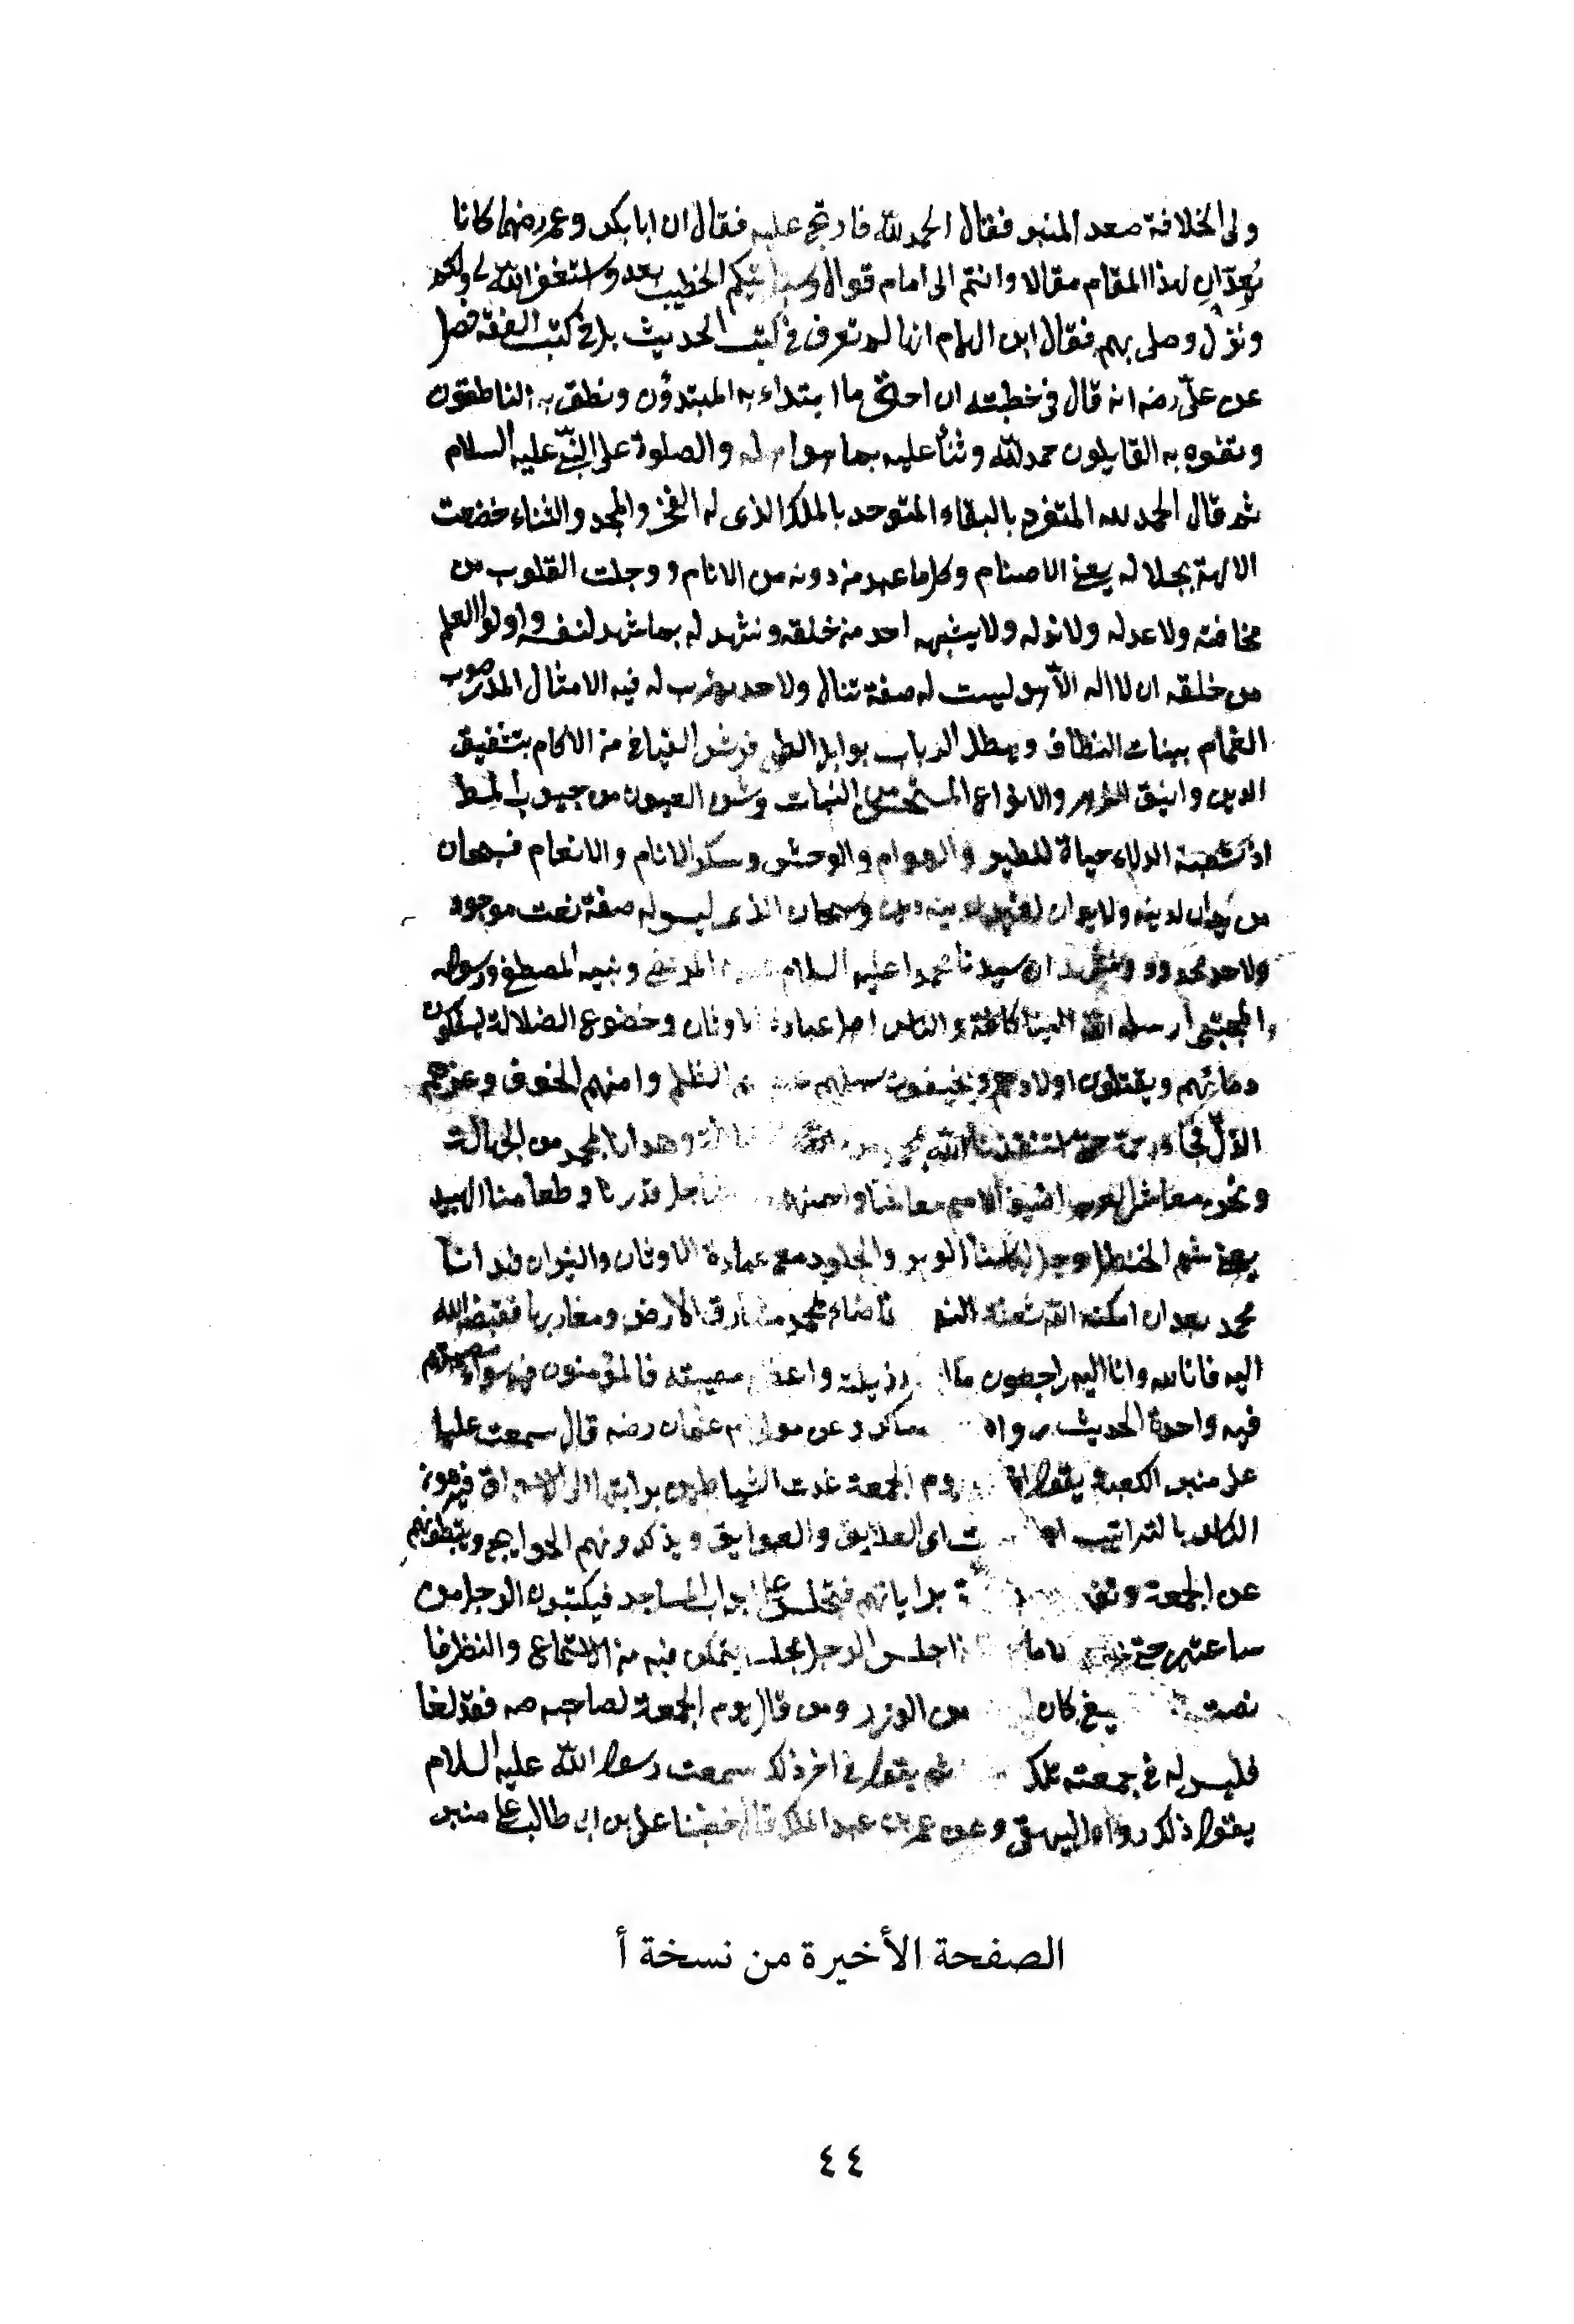 ولى الخلافة صعد المنبر فقال الحمد لله فارتج عليه فقال ان ابا بكر وعمر رضهما كانا
يعدّان لهذا المقام مقالا وانتم الى امام قوالا وسيأتيكم الخطيب بعد واستغفر الله لى ولكم
ونزل وصلى بهم فقال ابن الهمام انها لم تعرف فى كتب الحديث بل فى كتب الفقه فصل
عن علىّ رضه انه قال فى خطبته ان احق ما ابتداء به المبتدؤن ونطق به الناطقون
وتفوه به القايلون حمد لله وثناً عليه بما هو اهله والصلوة على النبىّ عليه السلام
ثم قال الحمد لله المتفرد بالبقاء المتوحد بالملك الذى له الفخر والمجد والثناء خضعت
الالهة بجلاله يعنى الاصنام وكل ما عبد من دونه من الانام ووجلت القلوب من
مخافته ولا عدل له ولا ند له ولا يشبهه احد من خلقه ونشهد له بما شهد لنفسه واولوا العلم
من خلقه ان لا اله الا هو ليست له صفة تنال ولا حد يضرب له فيه الامثال المدر صوب
الغمام ببنات النطاف ويهطل الرباب بوابل الطل فرش الفيافى من الاكام بتشقيق
الدمن وانيق الزهر والانواع المستحسن النبات وشق العيون من جيوب المط
اذ شبعته الدلاء حياة للطير والهوام والوحش وسكر الانام والانعام فسبحان
من يدان لدينه ولا يدان لغير دينه دين وسبحان الذى ليس له صفة نعت موجود
ولا حد محدود ونشهد ان سيدنا محمدا عليه السلام المرتضى ونبيه المصطفى ورسوله
المجتبى ارسله الله الينا كافة والناس اهل عبادة الاوثان وخضوع الضلالة يسفكون
دمائهم ويقتلون اولادهم ويخيفون سبيلهم الظلم وامنهم الخوف وعزهم
الذلّ حتى استنقذنا الله بمحمد من وهدانا بمحمد من الجهالة
ونحن معاشر العرب اضيق الامم معاشا جل قدرنا وطعامنا الهبيد
يعنى شحم الحنظل وجل لباسنا الوبر والجلود مع عبادة الاوثان والنيران
محمد بعد ان امكنه الله فاضاء بمحمد مشارق الارض ومغاربها فقبضه الله
اليه فانا لله وانا اليه راجعون رزيته واعظم مصيبته فالمؤمنون فيه سواء مصيبتهم
فيه واحدة الحديث رواه عساكر وعن عثمان رضه قال سمعت عليا
على منبر الكعبة يقول يوم الجمعة غدت الشياطين براياتها الى الاسواق فيرمون
الناس بالترابيث اى العلايق والعوايق ويذكرونهم الحوايج ويثبطونهم
عن الجمعة براياتهم فتجلس على ابواب المساجد فيكتبون الرجل من
ساعتين حتى جلس الرجل مجلسا يتمكن فيه من الاستماع والنظر فا
نصت كان من الوزر ومن قال يوم الجمعة لصاحبه صه فقد لغا
فليس له فى جمعته تلك ثم يقول فى اخر ذلك سمعت رسول الله عليه السلام
يقول ذلك رواه البيهقى وعن عمر بن عبد الملك قال خطبنا على بن ابى طالب على منبر
الصفحة الأخيرة من نسخة أ
٤٤